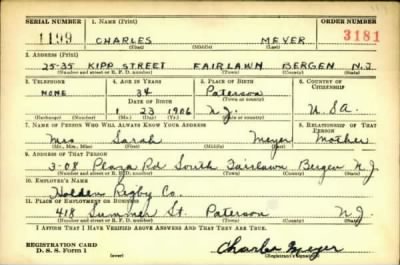 SERIAL NUMBER 1. NAME (Print) ORDER NUMBER
1199 CHARLES MEYER 3181
(First) (Middle) (Last)
2. ADDRESS (Print)
25-35 KIPP STREET FAIRLAWN BERGEN N.J.
(Number and street or R. F. D. number) (Town) (County) (State)
3. TELEPHONE 4. AGE IN YEARS 5. PLACE OF BIRTH 6. COUNTRY OF CITIZENSHIP
NONE 34 Paterson
(Town or county)
DATE OF BIRTH
1 23 1906 N.J. U.S.A.
(Exchange) (Number) (Mo.) (Day) (Yr.) (State or country)
7. NAME OF PERSON WHO WILL ALWAYS KNOW YOUR ADDRESS 8. RELATIONSHIP OF THAT PERSON
Mrs Sarah Meyer Mother
(Mr., Mrs., Miss) (First) (Middle) (Last)
9. ADDRESS OF THAT PERSON
3-08 Plaza Rd South Fairlawn Bergen N.J.
(Number and street or R. F. D. number) (Town) (County) (State)
10. EMPLOYER'S NAME
Holden Rigby Co.
11. PLACE OF EMPLOYMENT OR BUSINESS
418 Summer St. Paterson N.J.
(Number and street or R. F. D. number) (Town) (County) (State)
I AFFIRM THAT I HAVE VERIFIED ABOVE ANSWERS AND THAT THEY ARE TRUE.
REGISTRATION CARD
D. S. S. Form 1 (over) Charles Meyer
(Registrant's signature)